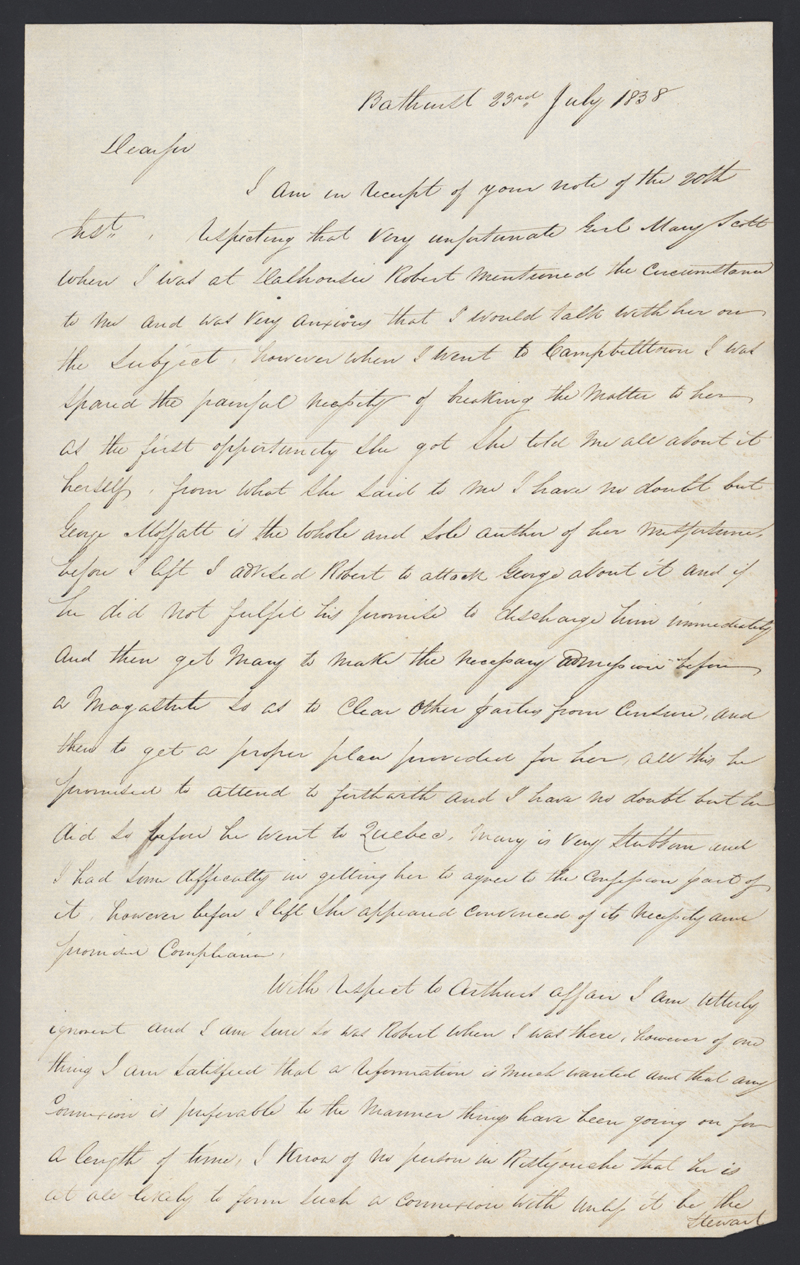 Bathurst 23rd July 1838
Dear Sir
I am in receipt of your note of the 20th
Inst. respecting that very unfortunate Girl Mary Scott
when I was at Dalhousie Robert mentioned the circumstance
to me and was very anxious that I would talk with her on
the subject, however when I went to Campbelltown I was
spared the painful necessity of breaking the matter to her
as the first opportunity she got she told me all about it
herself, from what she said to me I have no doubt but
George Moffatt is the whole and sole author of her misfortune,
before I left I advised Robert to attack George about it and if
he did not fulfil his promise to discharge him immediately
and then get Mary to make the necessary admission before
a Magistrate so as to clear other parties from Censure, and
then to get a proper place provided for her, all this he
promised to attend to forthwith and I have no doubt but he
did so before he went to Quebec, Mary is very stubborn and
I had some difficulty in getting her to agree to the confession part of
it, however before I left she appeared convinced of its necessity and
promised Compliance.
With respect to Arthurs affair I am utterly
ignorant and I am sure so was Robert when I was there, however of one
thing I am satisfied that a reformation is much wanted and that any
Connexion is preferable to the manner things have been going on for
a length of time, I know of no person in Restigouche that he is
at all likely to form such a connexion with unless it be the
Stewart